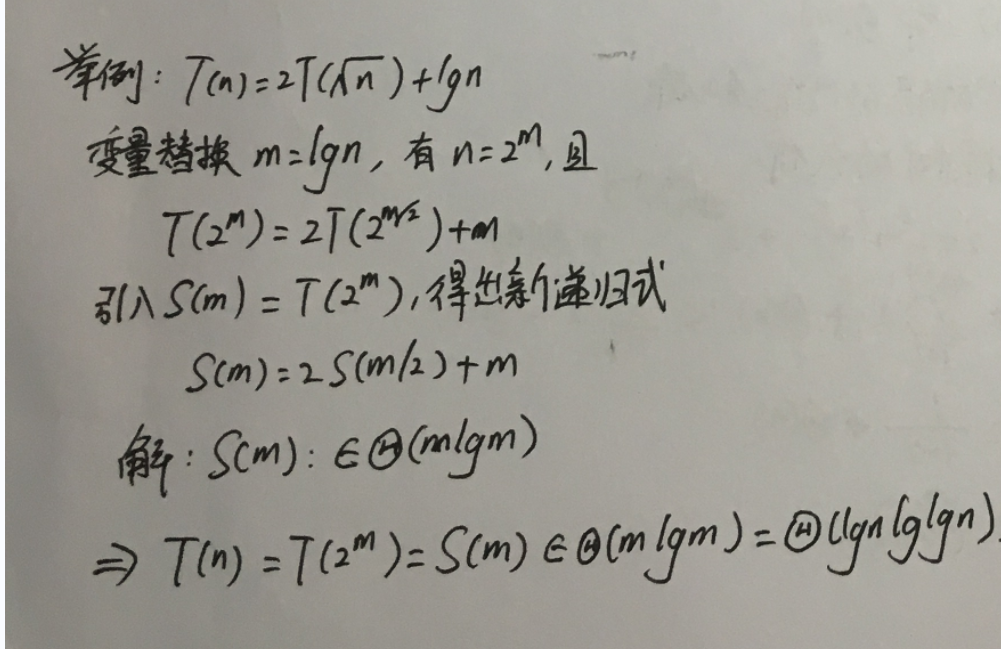 举例: T(n)=2T(√n)+lgn
变量替换 m=lgn, 有 n=2^m, 且
T(2^m)=2T(2^{m/2})+m
引入 S(m)=T(2^m), 得出新递归式
S(m)=2S(m/2)+m
解: S(m): ∈Θ(mlgm)
⇒ T(n)=T(2^m)=S(m)∈Θ(mlgm)=Θ(lgnlglgn).